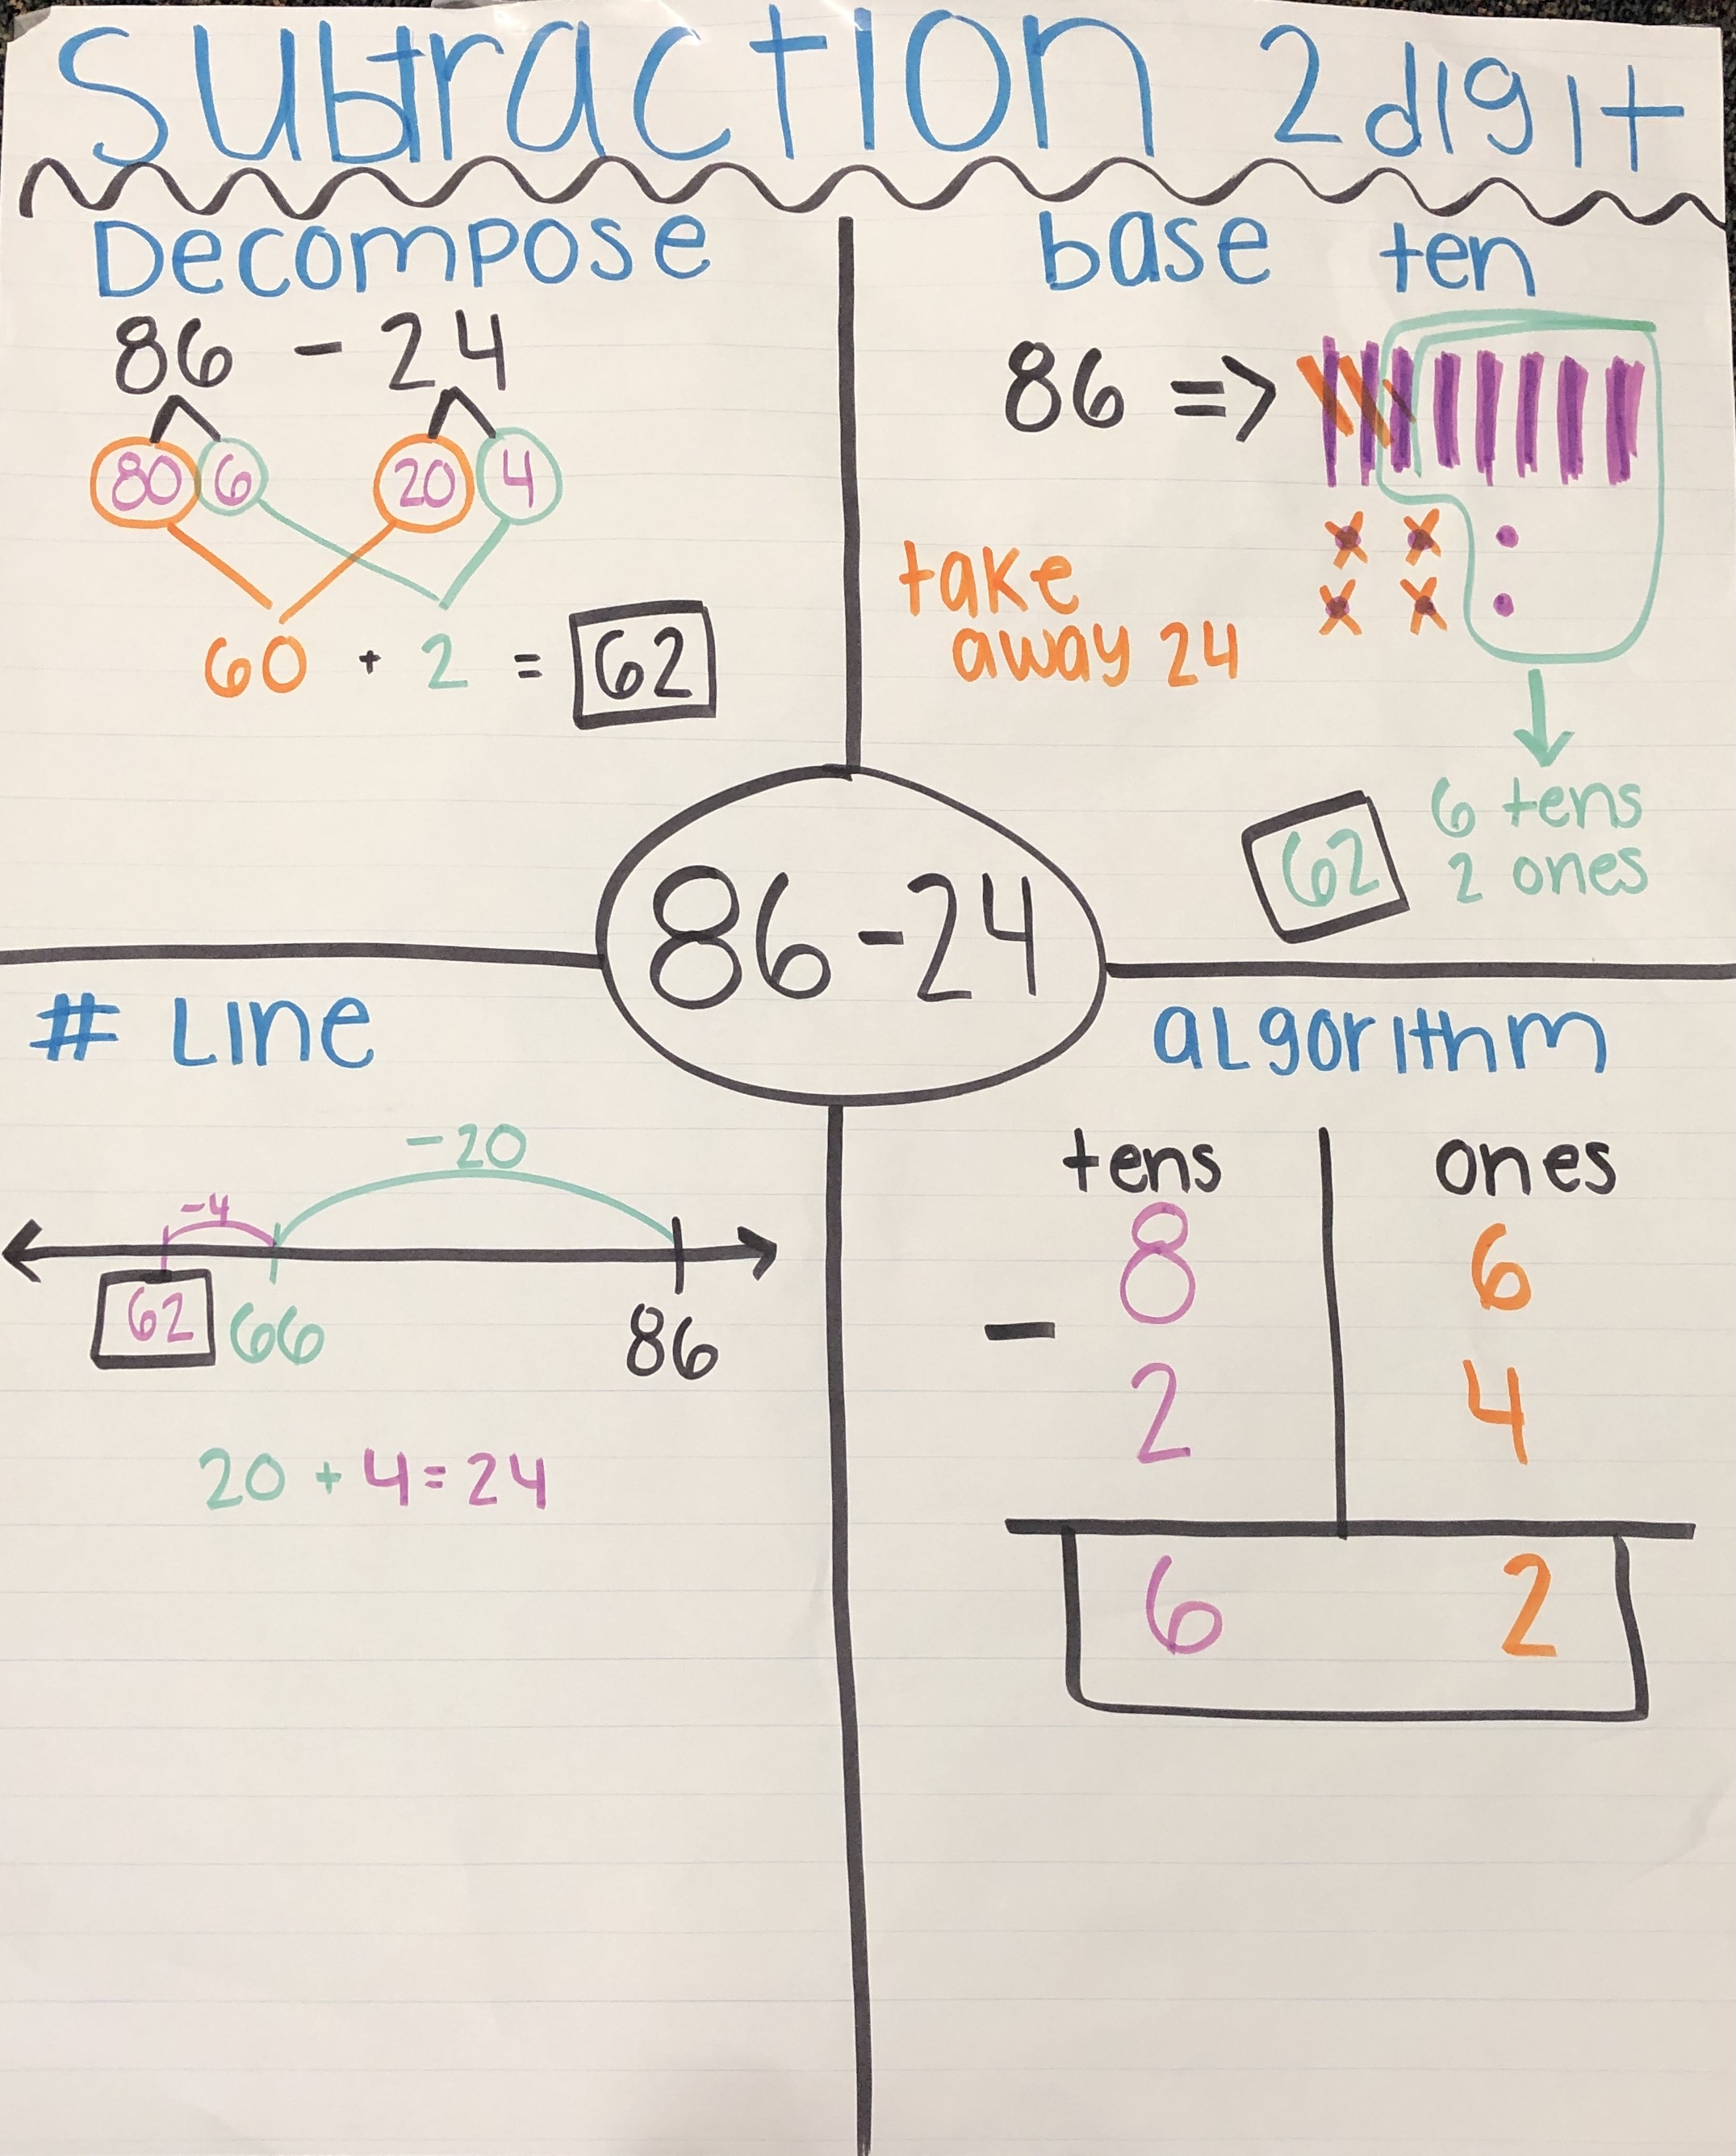 Subtraction 2 digit
Decompose
86 - 24
80 6 20 4
60 + 2 = 62
base ten
86 =>
take
away 24
6 tens
2 ones
62
86-24
# Line
-20
-4
62 66 86
20 + 4 = 24
algorithm
tens ones
8 6
-
2 4
6 2